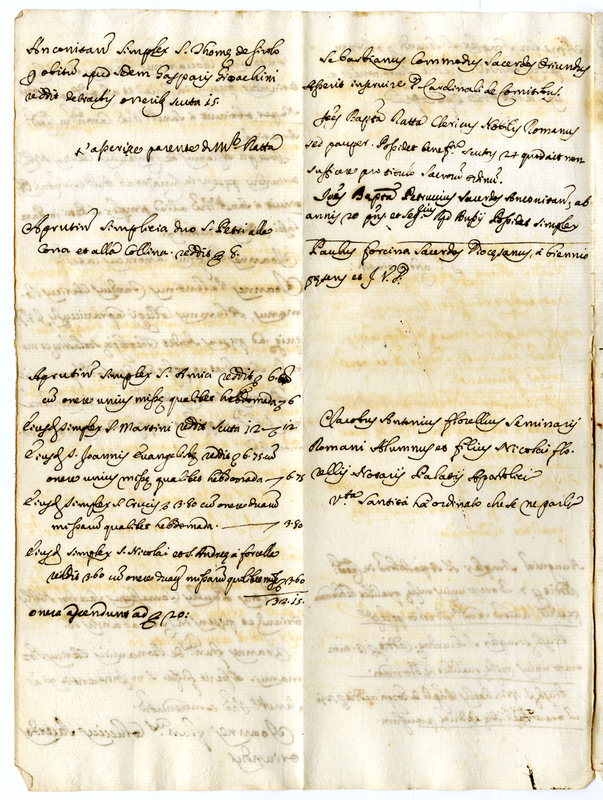 Anconitan. simplex S. Thomę de
obitum apud sedem Gasparis Gioachini
reddit detractis onerib. scuta 15.
parente di Mr. Ratta
Aprutin. simplicia duo S. Petri alla
Cona et alla Collina. reddit 8.
Aprutin. simplex S. reddit 6.
cū onere unius missę qualibet hebdomada 6
Eiusd. simplex S. Martini reddit scuta 12 – 12
Eiusd. S. Joannis Euangelistę reddit 6.75 cū
onere unius missę qualibet hebdomada – 6.75
Eiusd. simplex S. Crucis 3.80 cū onere duarū
missarum qualibet hebdomada. – 3.80
Eiusd. simplex S. Nicolai et S. Andreę a forcella
reddit 3.60 cū onere duarū missarum qualibet 3.60
32.15.
onera ascendunt ad 20:
Sebastianus Commodus Sacerdos Oriundus
Asserit inseruire D. Cardinali de Comitibus.
Joēs Baptā Ratta Clericus Nobilis Romanus
sed pauper. Possidet benef. scutor. 24 quod ait non
sufficere pro titulo sacrorū ordinū.
Joēs Baptā Petrucius Sacerdos Anconitan., ab
annis 20 Possidet simplex
Paulus Forcina Sacerdos Diocesanus, a biennio
et J. V. D.
Jacobus Antonius Florellius Seminarij
Romani Alumnus et filius Nicolai Flo-
rellij Notarij Palatij Apostolici
Santità ha ordinato che se ne parli